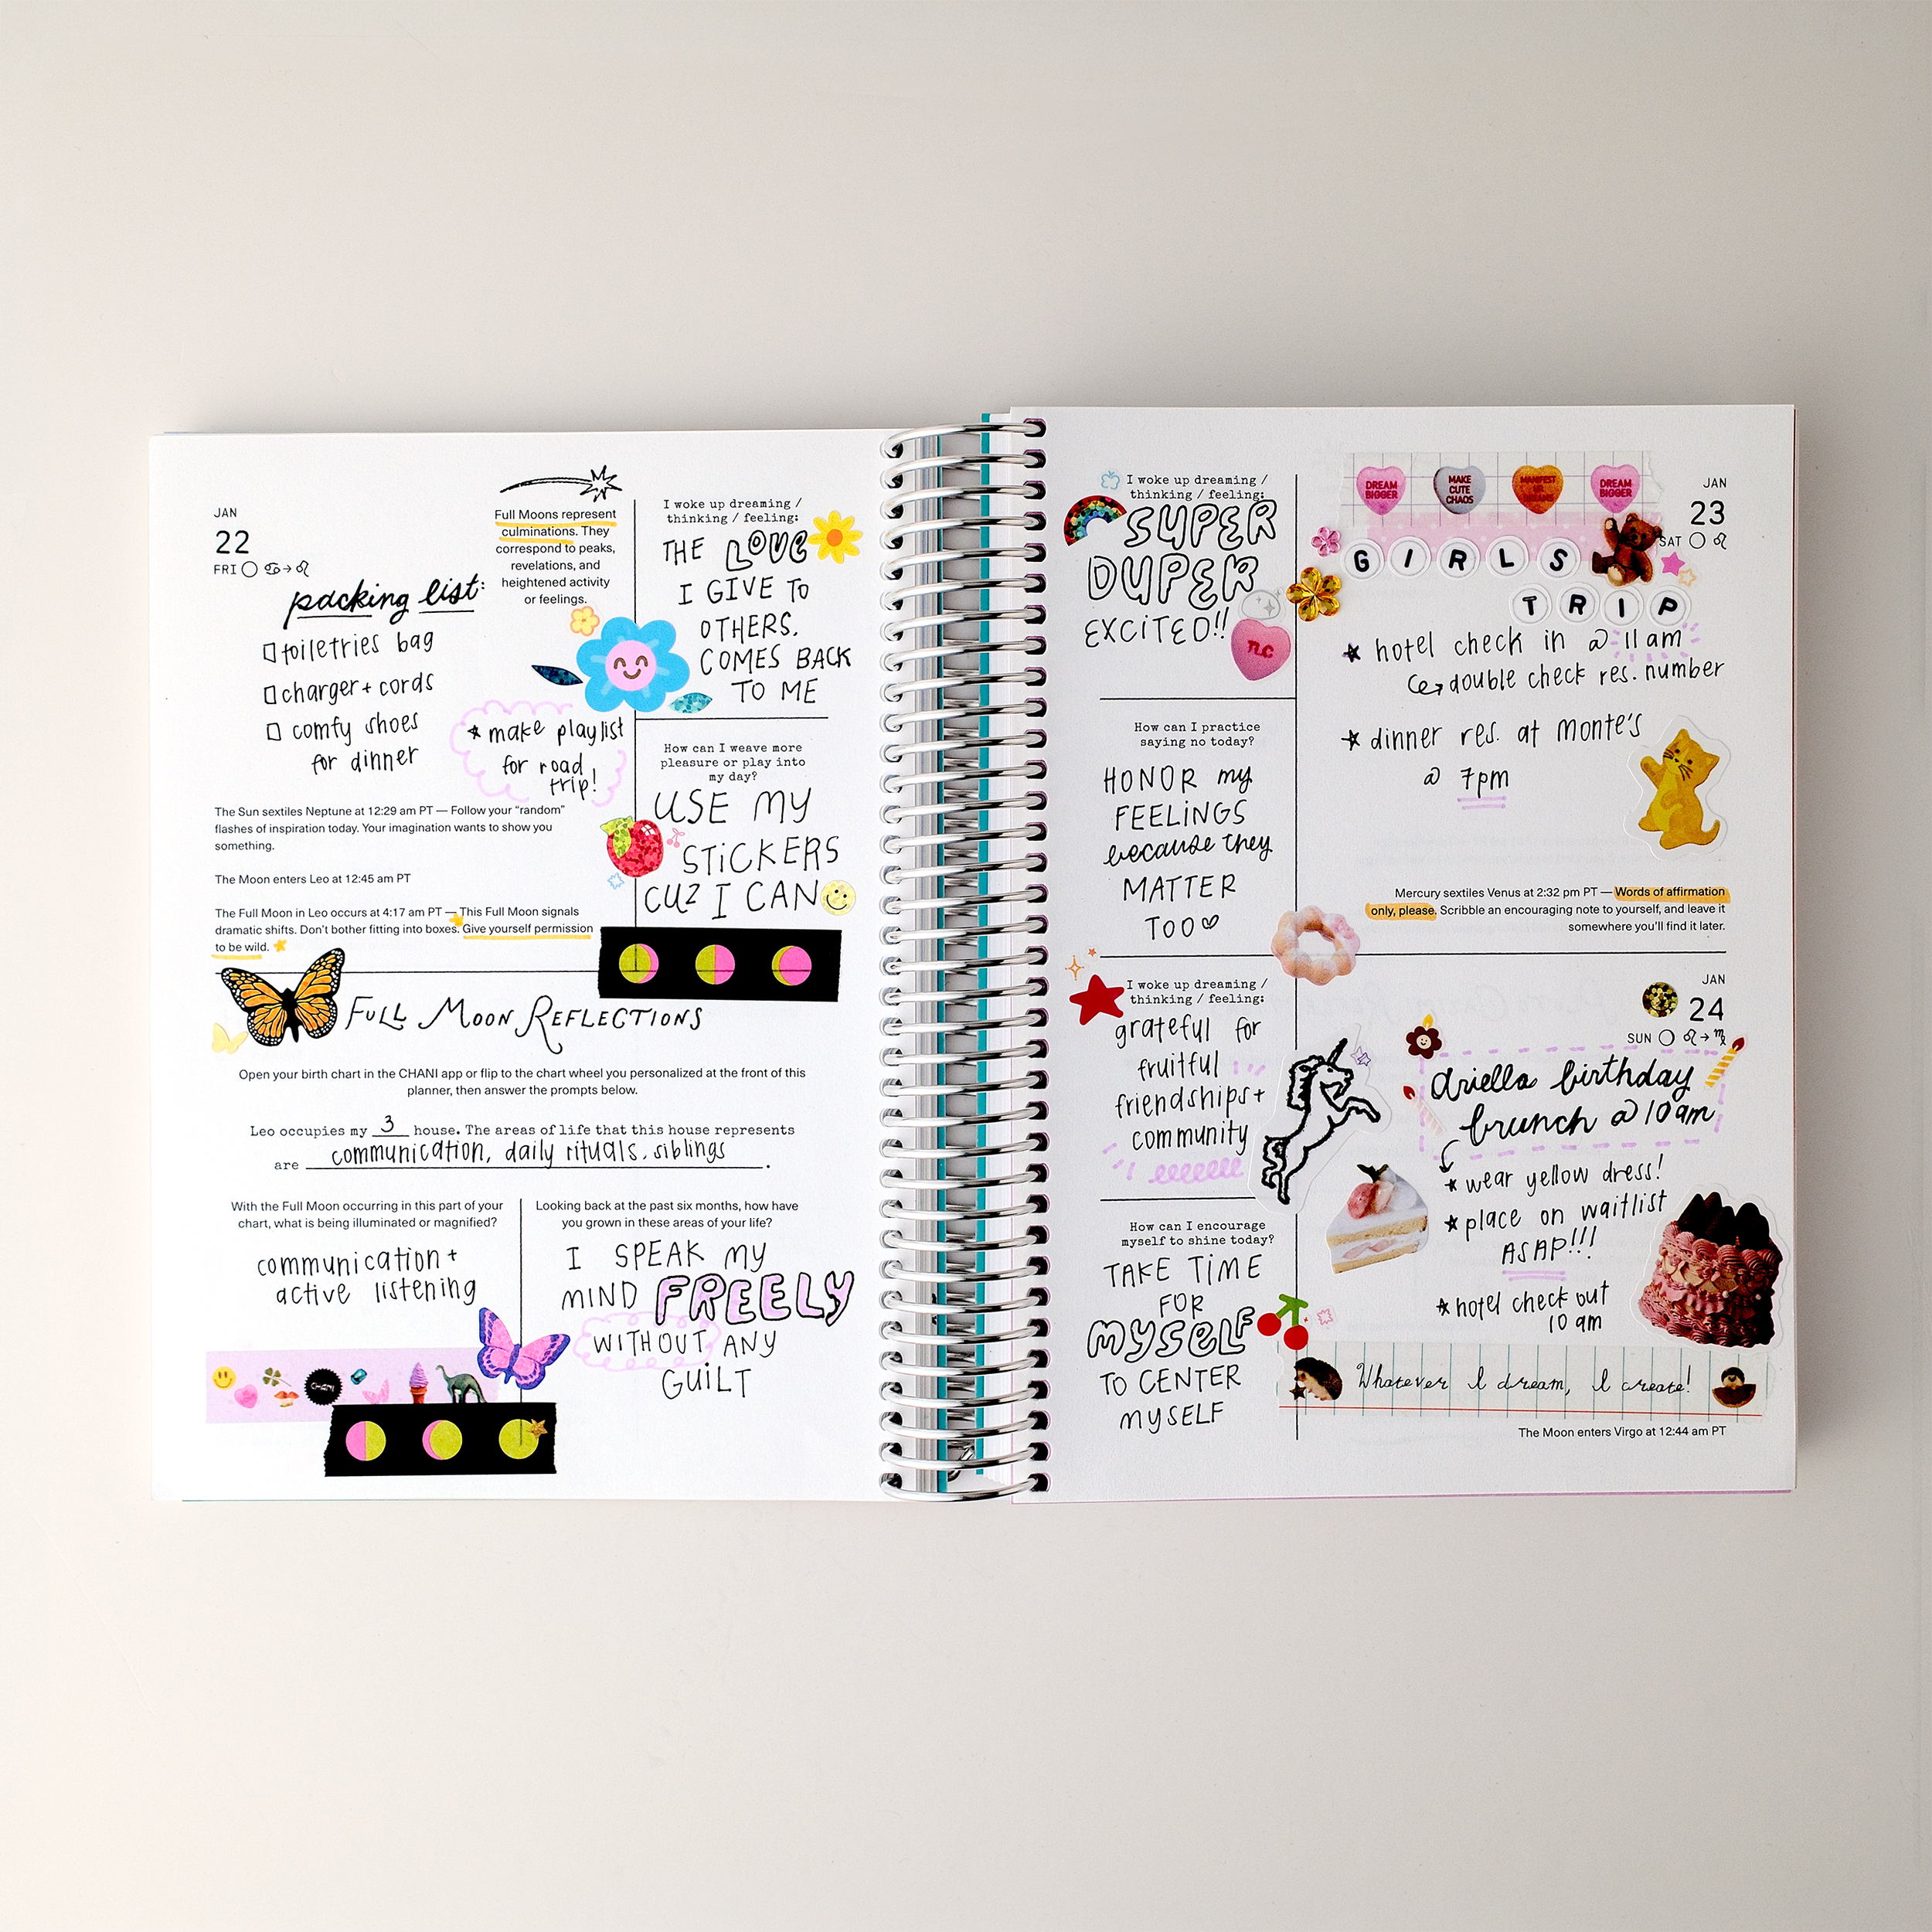 JAN
22
FRI
Full Moons represent
culminations. They
correspond to peaks,
revelations, and
heightened activity
or feelings.
packing list:
toiletries bag
charger + cords
comfy shoes
for dinner
* make playlist
for road
trip!
The Sun sextiles Neptune at 12:29 am PT — Follow your “random”
flashes of inspiration today. Your imagination wants to show you
something.
The Moon enters Leo at 12:45 am PT
The Full Moon in Leo occurs at 4:17 am PT — This Full Moon signals
dramatic shifts. Don’t bother fitting into boxes. Give yourself permission
to be wild.
I woke up dreaming /
thinking / feeling:
THE LOVE
I GIVE TO
OTHERS.
COMES BACK
TO ME
How can I weave more
pleasure or play into
my day?
USE MY
STICKERS
CUZ I CAN
FULL MOON REFLECTIONS
Open your birth chart in the CHANI app or flip to the chart wheel you personalized at the front of this
planner, then answer the prompts below.
Leo occupies my 3 house. The areas of life that this house represents
are communication, daily rituals, siblings.
With the Full Moon occurring in this part of your
chart, what is being illuminated or magnified?
communication +
active listening
Looking back at the past six months, how have
you grown in these areas of your life?
I SPEAK MY
MIND FREELY
WITHOUT ANY
GUILT
CHANI
I woke up dreaming /
thinking / feeling:
SUPER
DUPER
EXCITED!!
nc
How can I practice
saying no today?
HONOR my
FEELINGS
because they
MATTER
TOO
I woke up dreaming /
thinking / feeling:
grateful for
fruitful
friendships +
community
How can I encourage
myself to shine today?
TAKE TIME
FOR
MYSELF
TO CENTER
MYSELF
DREAM BIGGER
MAKE CUTE CHAOS
MANIFEST UR DREAMS
DREAM BIGGER
JAN
23
SAT
GIRLS
TRIP
hotel check in @ 11am
double check res. number
dinner res. at monte's
@ 7pm
Mercury sextiles Venus at 2:32 pm PT — Words of affirmation
only, please. Scribble an encouraging note to yourself, and leave it
somewhere you’ll find it later.
JAN
24
SUN
Ariella birthday
brunch @ 10am
wear yellow dress!
place on waitlist
ASAP!!!
hotel check out
10 am
Whatever I dream, I create!
The Moon enters Virgo at 12:44 am PT